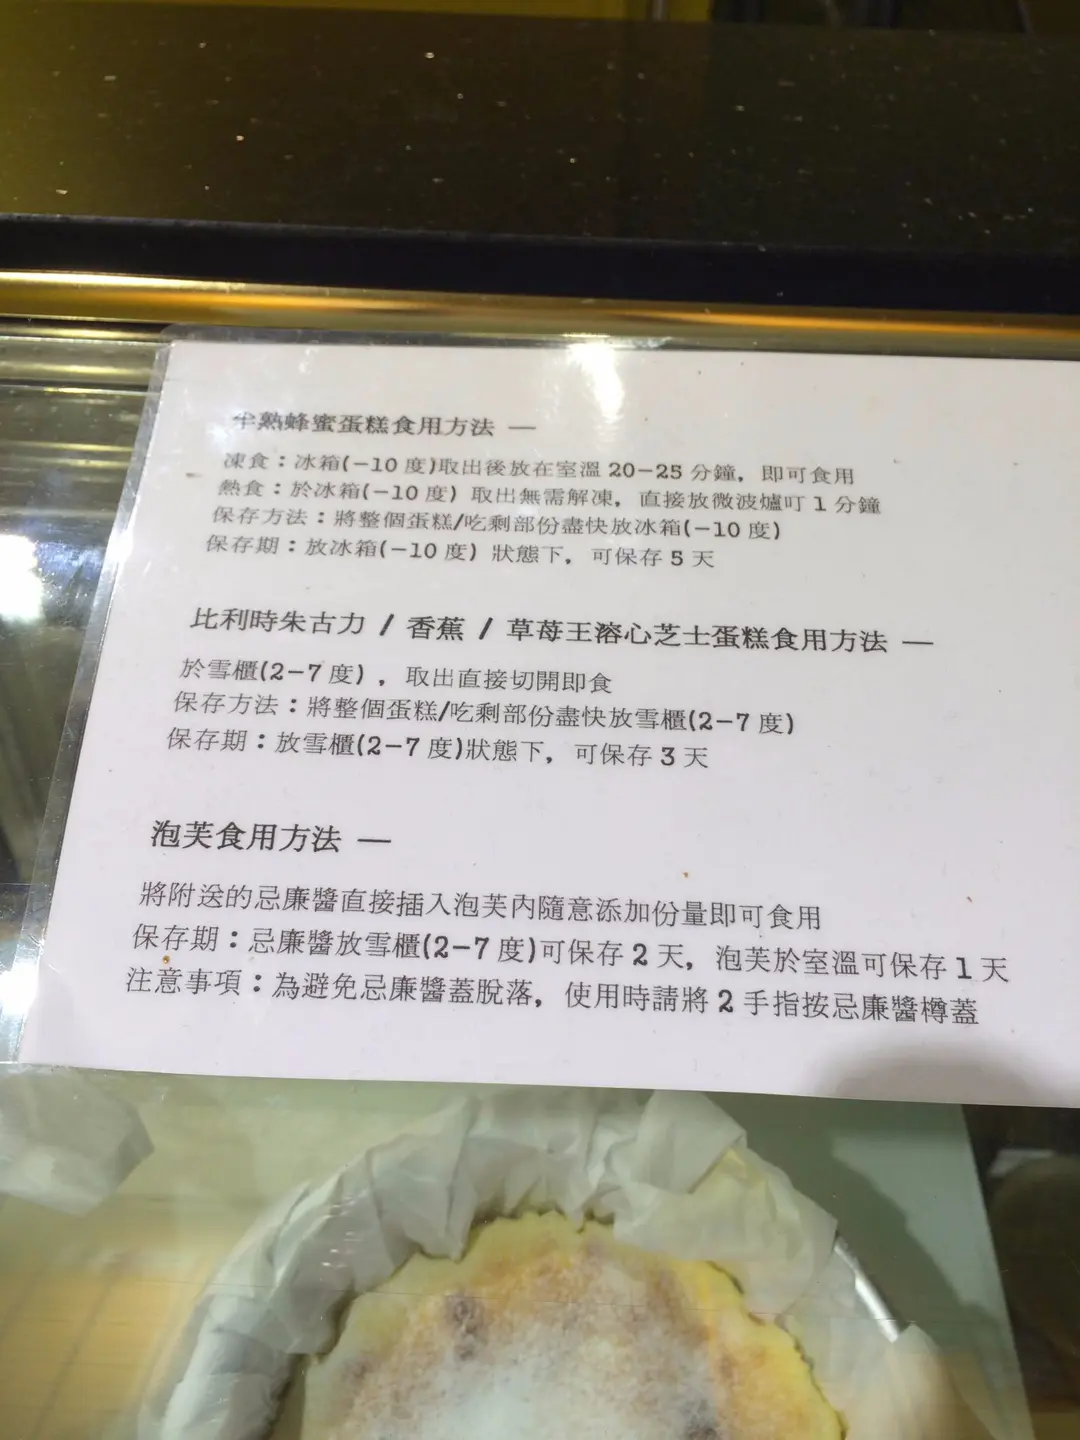 半熟蜂蜜蛋糕食用方法 —
凍食：冰箱(-10 度)取出後放在室溫 20-25 分鐘，即可食用
熱食：於冰箱(-10 度) 取出無需解凍，直接放微波爐叮 1 分鐘
保存方法：將整個蛋糕/吃剩部份盡快放冰箱(-10 度)
保存期：放冰箱(-10 度) 狀態下，可保存 5 天
比利時朱古力 / 香蕉 / 草莓王溶心芝士蛋糕食用方法 —
於雪櫃(2-7 度) ，取出直接切開即食
保存方法：將整個蛋糕/吃剩部份盡快放雪櫃(2-7 度)
保存期：放雪櫃(2-7 度)狀態下，可保存 3 天
泡芙食用方法 —
將附送的忌廉醬直接插入泡芙內隨意添加份量即可食用
保存期：忌廉醬放雪櫃(2-7 度)可保存 2 天，泡芙於室溫可保存 1 天
注意事項：為避免忌廉醬蓋脫落，使用時請將 2 手指按忌廉醬樽蓋